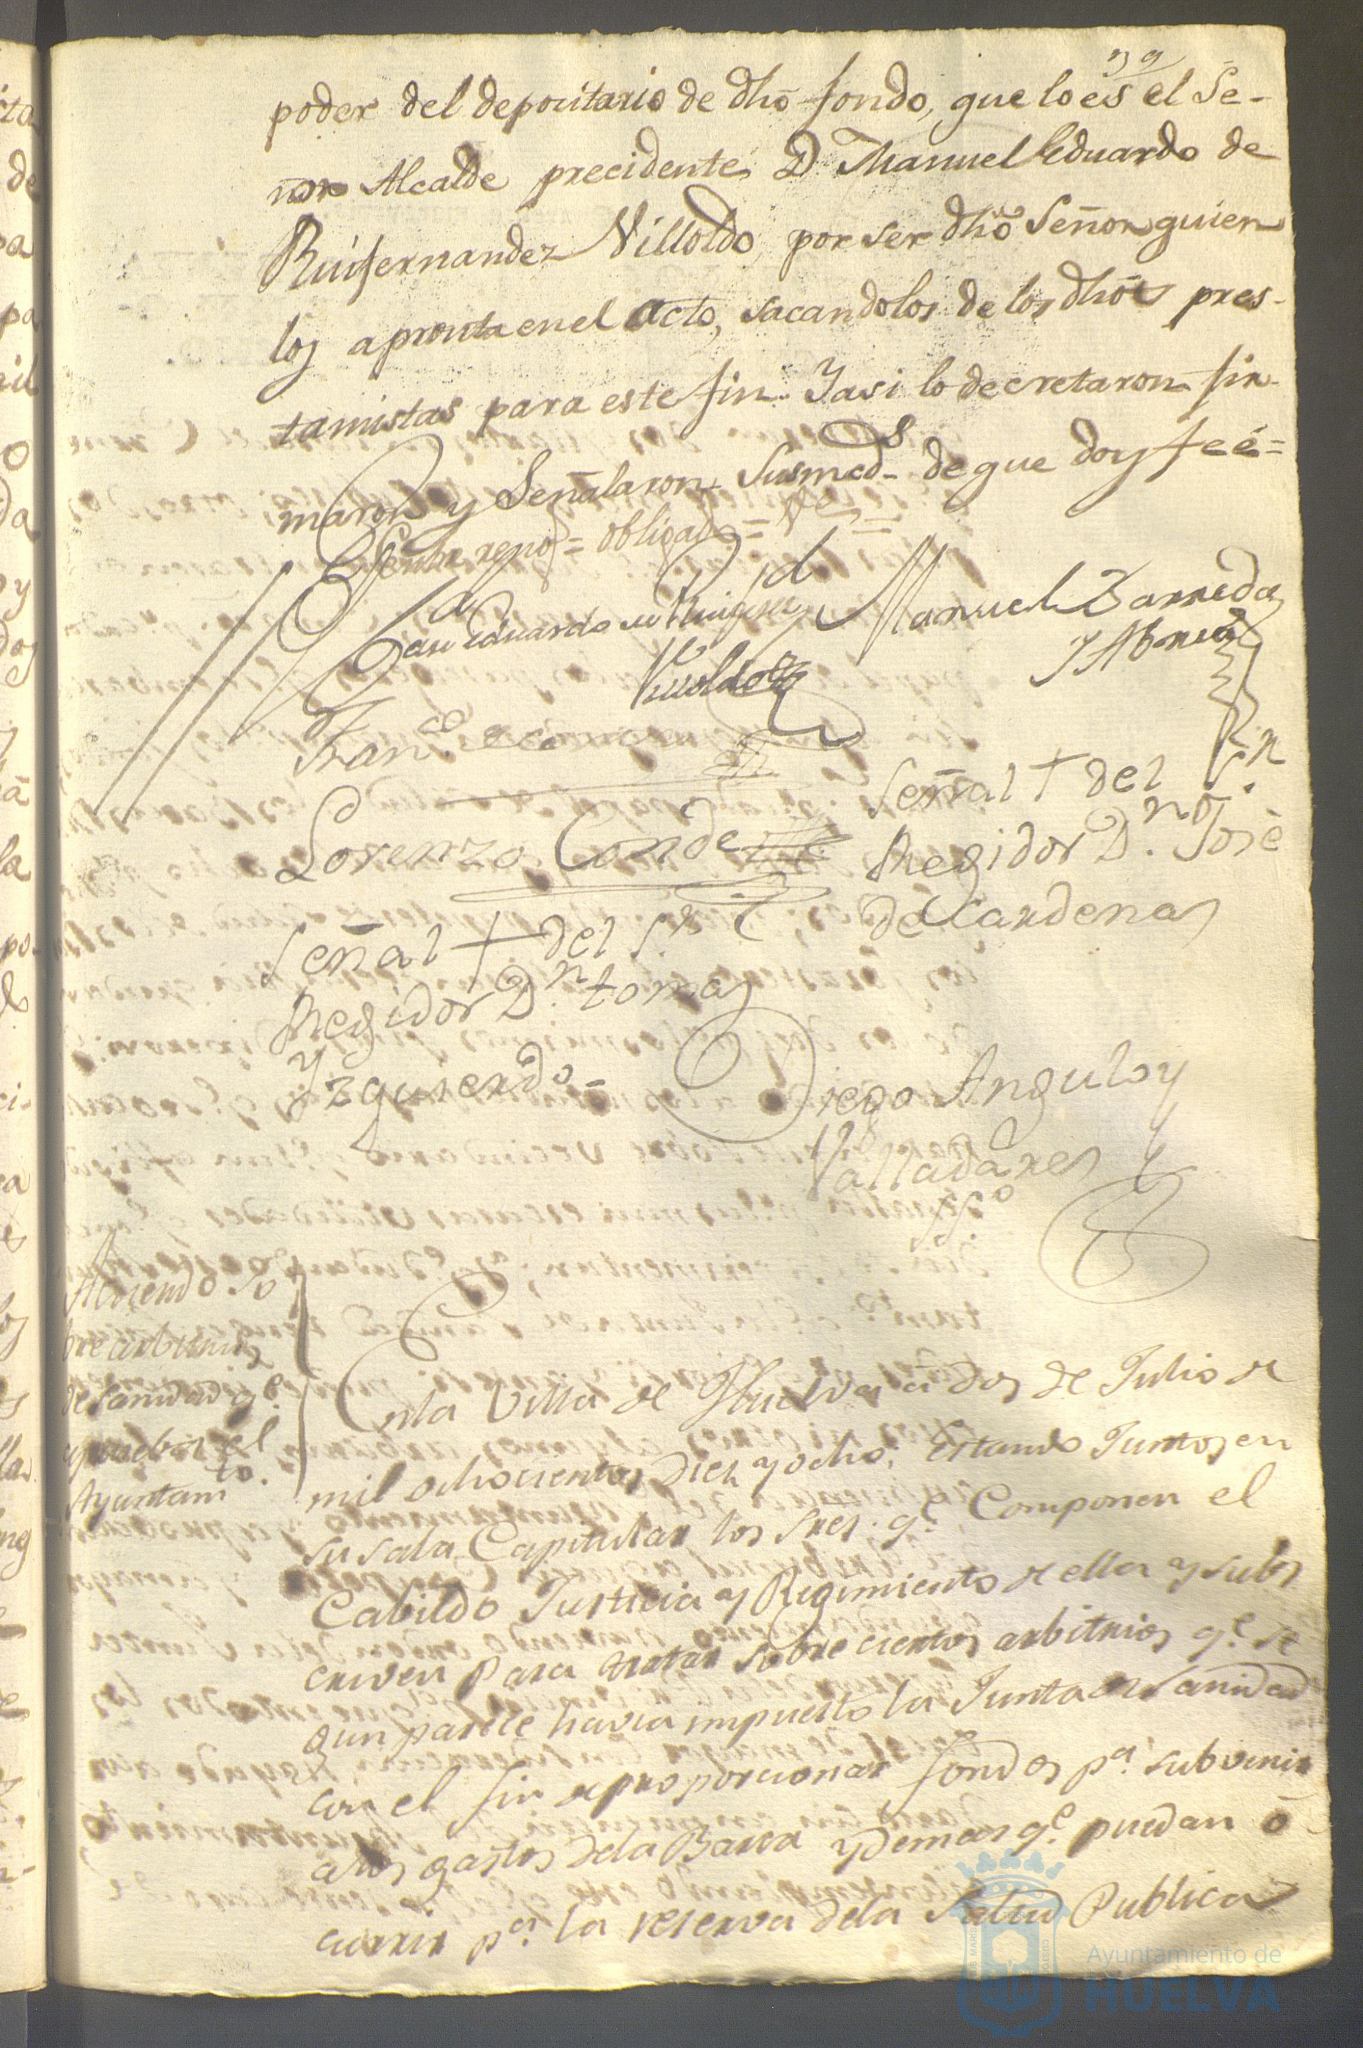 39
poder del depocitario de dhô fondo, que lo es el Se-
ñor Alcalde precidente D Manuel Eduardo de
Ruifernandez Villoldo, por ser dhô Señor quien
los apronta en el acto, sacandolos de los dhôs pres-
tamistas para este fin. Y asi lo decretaron fir-
maron y Señalaron Susmeds de que doy feé=
obligado=
Eduardo de Ruifern
Villoldo
Manuel Barreda
Y Abreu
Franco
Lorenzo Conde
Señal + del Sn
Regidor Dn José
de Cardenas
Señal + del Sr
Regidor Dn tomas
Yzquierdo-
Diego Angulo y
Valladares
SSo
Acuerdo so
bre arbitrios
de sanidad qe
aprueba el
Ayuntamto.
En la Villa de Huelva a dos de Julio de
mil ochocientos diez y ocho; estando Juntos en
su sala Capitular los Sres. qe. Componen el
Cabildo Justicia y Regimiento de ella y subs
criven para tratar sobre ciertos arbitrios qe. se
gun parece havia impuesto la Junta de Sanidad
con el fin de proporcionar fondos pa. subvenir
a los gastos de la Barca y demas qe. puedan o
currir pa. la reserva de la Salud Publica
Ayuntamiento de
HUELVA